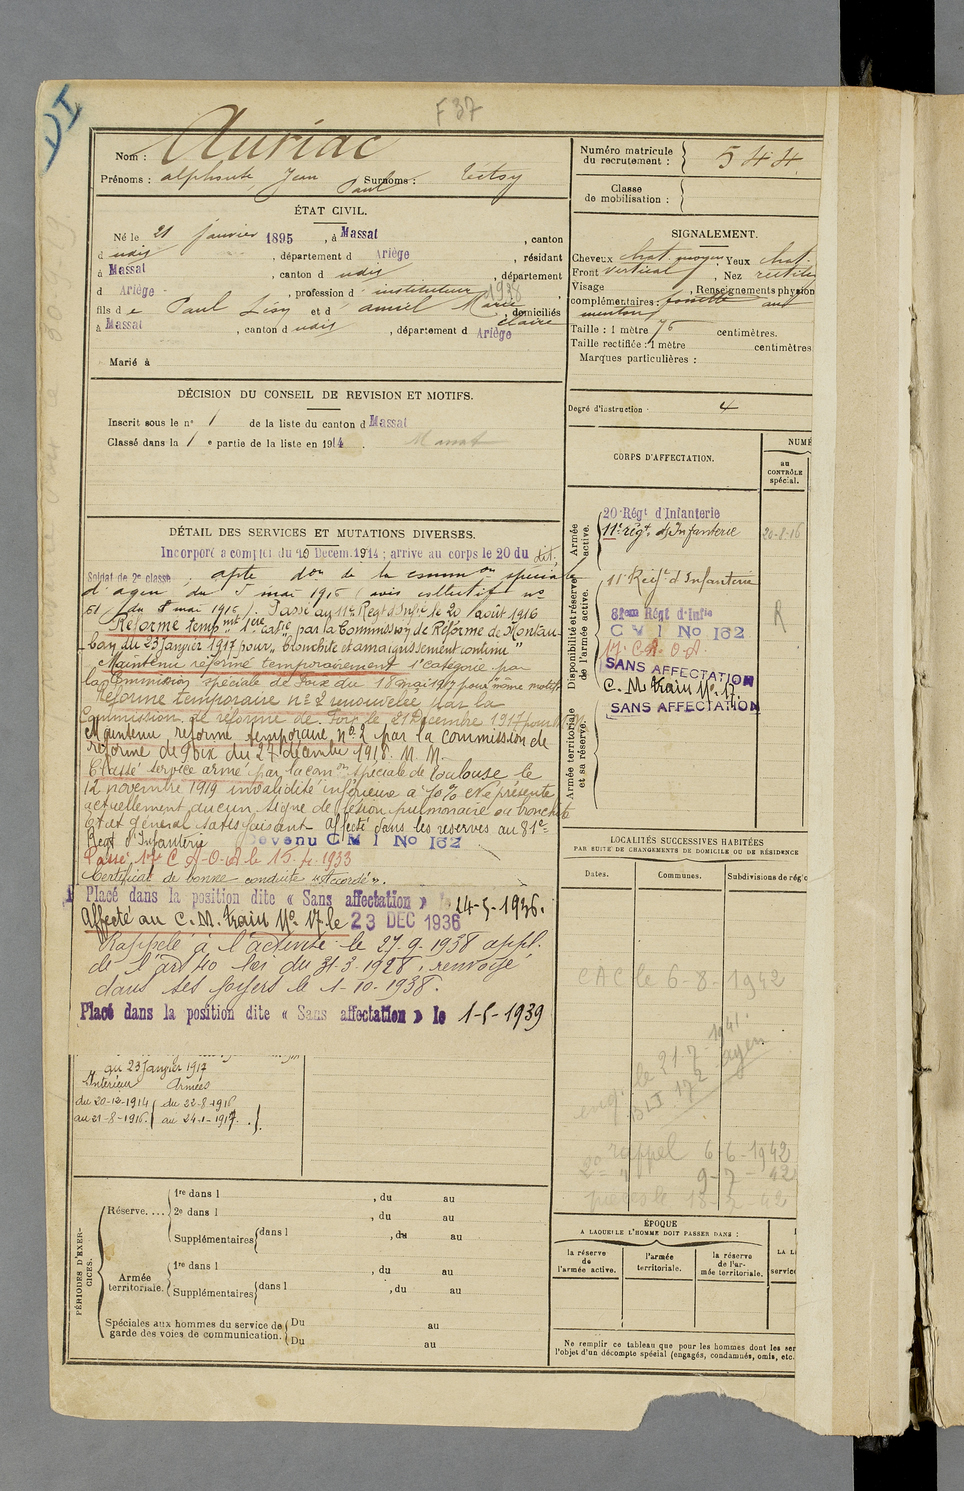 VI
F 37
Nom : Auriac
Prénoms : alphonse, Jean Paul Surnoms :
ÉTAT CIVIL.
Né le 21 janvier 1895, à Massat, canton
d udit, département d Ariège, résidant
à Massat, canton d udit, département
d Ariège, profession d instituteur 1938
fils de Paul et d Marie Claire, domiciliés
à Massat, canton d udit, département d Ariège
Marié à
DÉCISION DU CONSEIL DE REVISION ET MOTIFS.
Inscrit sous le n° 1 de la liste du canton d Massat
Classé dans la 1 e partie de la liste en 1914. Massat
DÉTAIL DES SERVICES ET MUTATIONS DIVERSES.
Incorporé à compter du 20 Décem. 1914 ; arrivé au corps le 20 du dit.
Soldat de 2e classe ; apte don de la comm on spéciale
d'agen du 5 mai 1916 (avis collectif no
51 du 8 mai 1916). Passé au 11e Regt d'Infie le 20 août 1916
Réformé tempmt 1ere catie par la Commission de Réforme de Montau-
ban du 23 Janvier 1917 pour "bronchite et amaigrissement continu"
Maintenu réformé temporairement 1e catégorie par
la Commission spéciale de Foix du 18 mai 1917 pour même motif
Réforme temporaire n° 2 renouvelée par la
Commission de réforme de Foix le 21 Décembre 1917 pour
Maintenu réformé temporaire No 2 par la Commission de
réforme de Foix du 27 décembre 1918. M. M.
Classé service armé par la comon spéciale de Toulouse le
12 novembre 1919 invalidité inférieure à 10% Ne présente
actuellement aucun signe de lésion pulmonaire ou bronchite
Etat général satisfaisant Affecté dans les réserves au 81e
Regt d'Infanterie Devenu C M I No 162
Passé 17e C A-O-A le 15. 1933
Certificat de bonne conduite "Accordé".
Placé dans la position dite « Sans affectation » le 14-5-1936.
Affecté au C. M. train No 17 le 23 DEC 1936
Rappelé à l'activité le 27-9-1938 appl.
de l'art 40 loi du 31-3-1928, renvoyé
dans ses foyers le 1-10-1938.
Placé dans la position dite « Sans affectation » le 1-5-1939
au 23 Janvier 1917
Intérieur Armées
du 20-12-1914 du 22-8-1916
au 21-8-1916. au 24-1-1917.
PÉRIODES D'EXERCICES.
Réserve.... 1re dans l , du au
2e dans l , du au
Supplémentaires dans l , du au
Armée territoriale. 1re dans l , du au
Supplémentaires dans l , du au
Spéciales aux hommes du service de garde des voies de communication. Du au
Du au
Numéro matricule du recrutement : 544
Classe de mobilisation :
SIGNALEMENT.
Cheveux chat. moyen Yeux chat.
Front vertical, Nez rectiligne
Visage , Renseignements physion
complémentaires : fossette au
menton
Taille : 1 mètre 76 centimètres.
Taille rectifiée : 1 mètre centimètres
Marques particulières :
Degré d'instruction 4
CORPS D'AFFECTATION.
NUMÉ
au CONTRÔLE spécial.
Armée active.
20 Régt d'Infanterie
11e régt. d'Infanterie 20-8-16
Disponibilité et réserve de l'armée active.
11e Régt d'Infanterie
81eme Régt d'Infie
C M I No 162 R
17. C. A. O. A.
SANS AFFECTATION
C. M train No 17.
SANS AFFECTATION
Armée territoriale et sa réserve.
LOCALITÉS SUCCESSIVES HABITÉES
PAR SUITE DE CHANGEMENTS DE DOMICILE OU DE RÉSIDENCE
Dates. Communes. Subdivisions de rég
CAC le 6-8-1942
le 21 7 1941.
172 agen
2o rappel 6-6-1942
9-7-42
18-7-42
ÉPOQUE
A LAQUELLE L'HOMME DOIT PASSER DANS :
la réserve de l'armée active.
l'armée territoriale.
la réserve de l'armée territoriale.
Ne remplir ce tableau que pour les hommes dont les ser
l'objet d'un décompte spécial (engagés, condamnés, omis, etc.